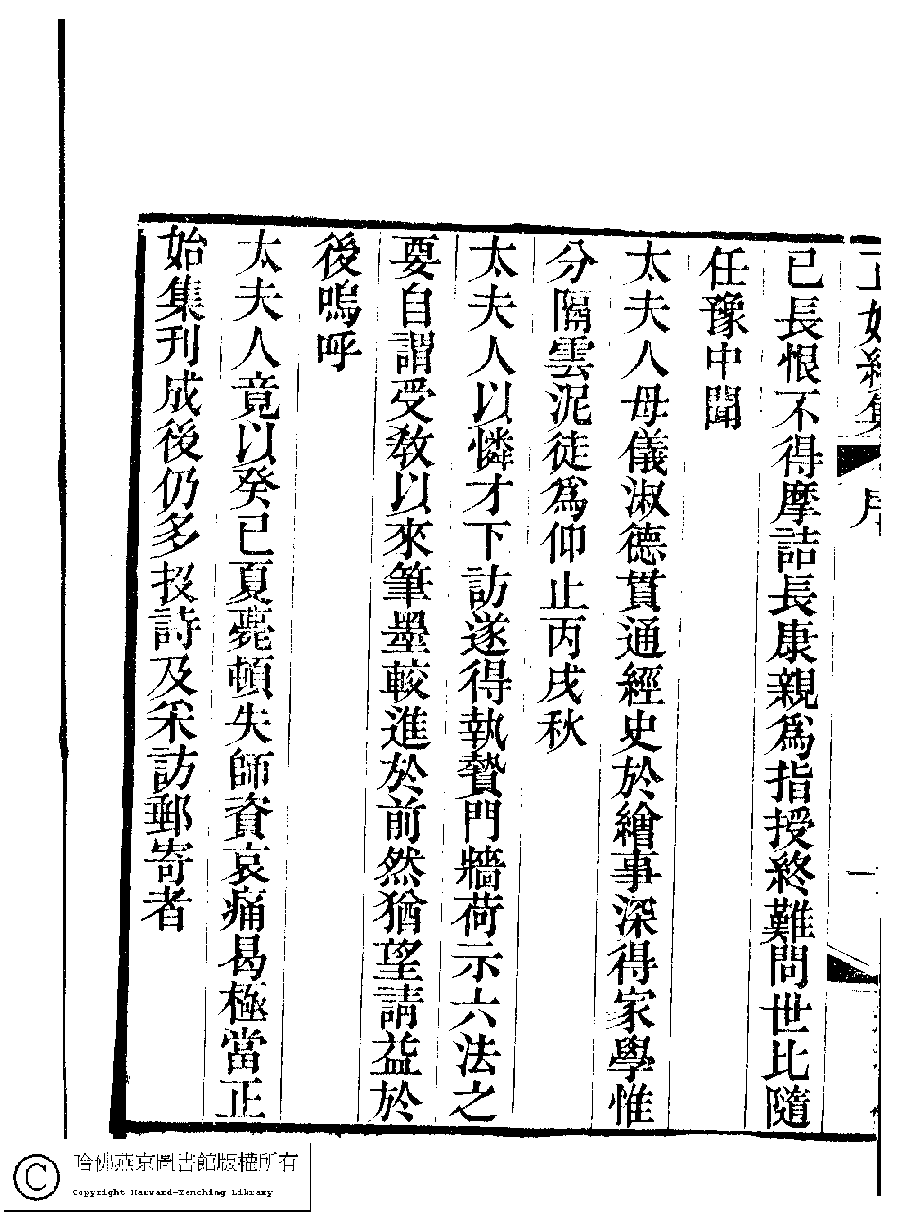 正始續集 序 一
已長恨不得摩詰長康親為指授終難問世比隨
任豫中聞
太夫人母儀淑德貫通經史於繪事深得家學惟
分隔雲泥徒為仰止丙戌秋
太夫人以憐才下訪遂得執贄門牆荷示六法之
要自謂受敎以來筆墨較進於前然猶望請益於
後嗚呼
太夫人竟以癸巳夏薨頓失師資哀痛曷極當正
始集刊成後仍多投詩及采訪郵寄者
哈佛燕京圖書館版權所有
Copyright Harvard-Yenching Library